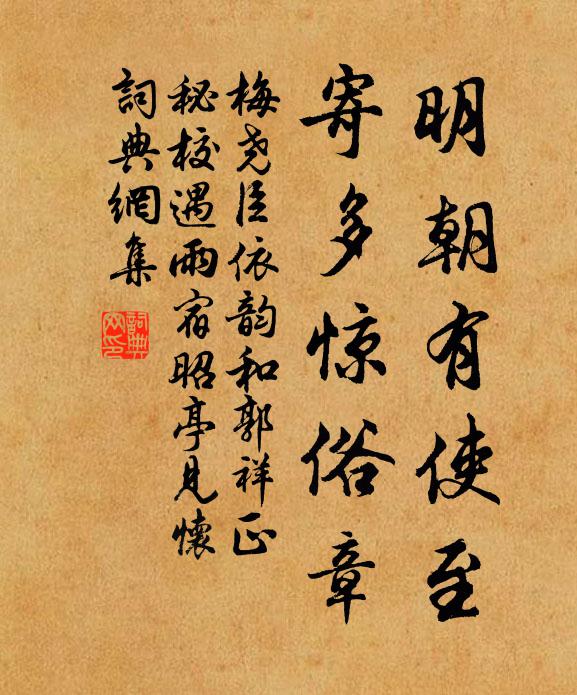 明朝有使至
寄多惊俗章
梅尧臣依韵和郭祥正
秘校遇雨宿昭亭見懷
詞典網集
詞典网印